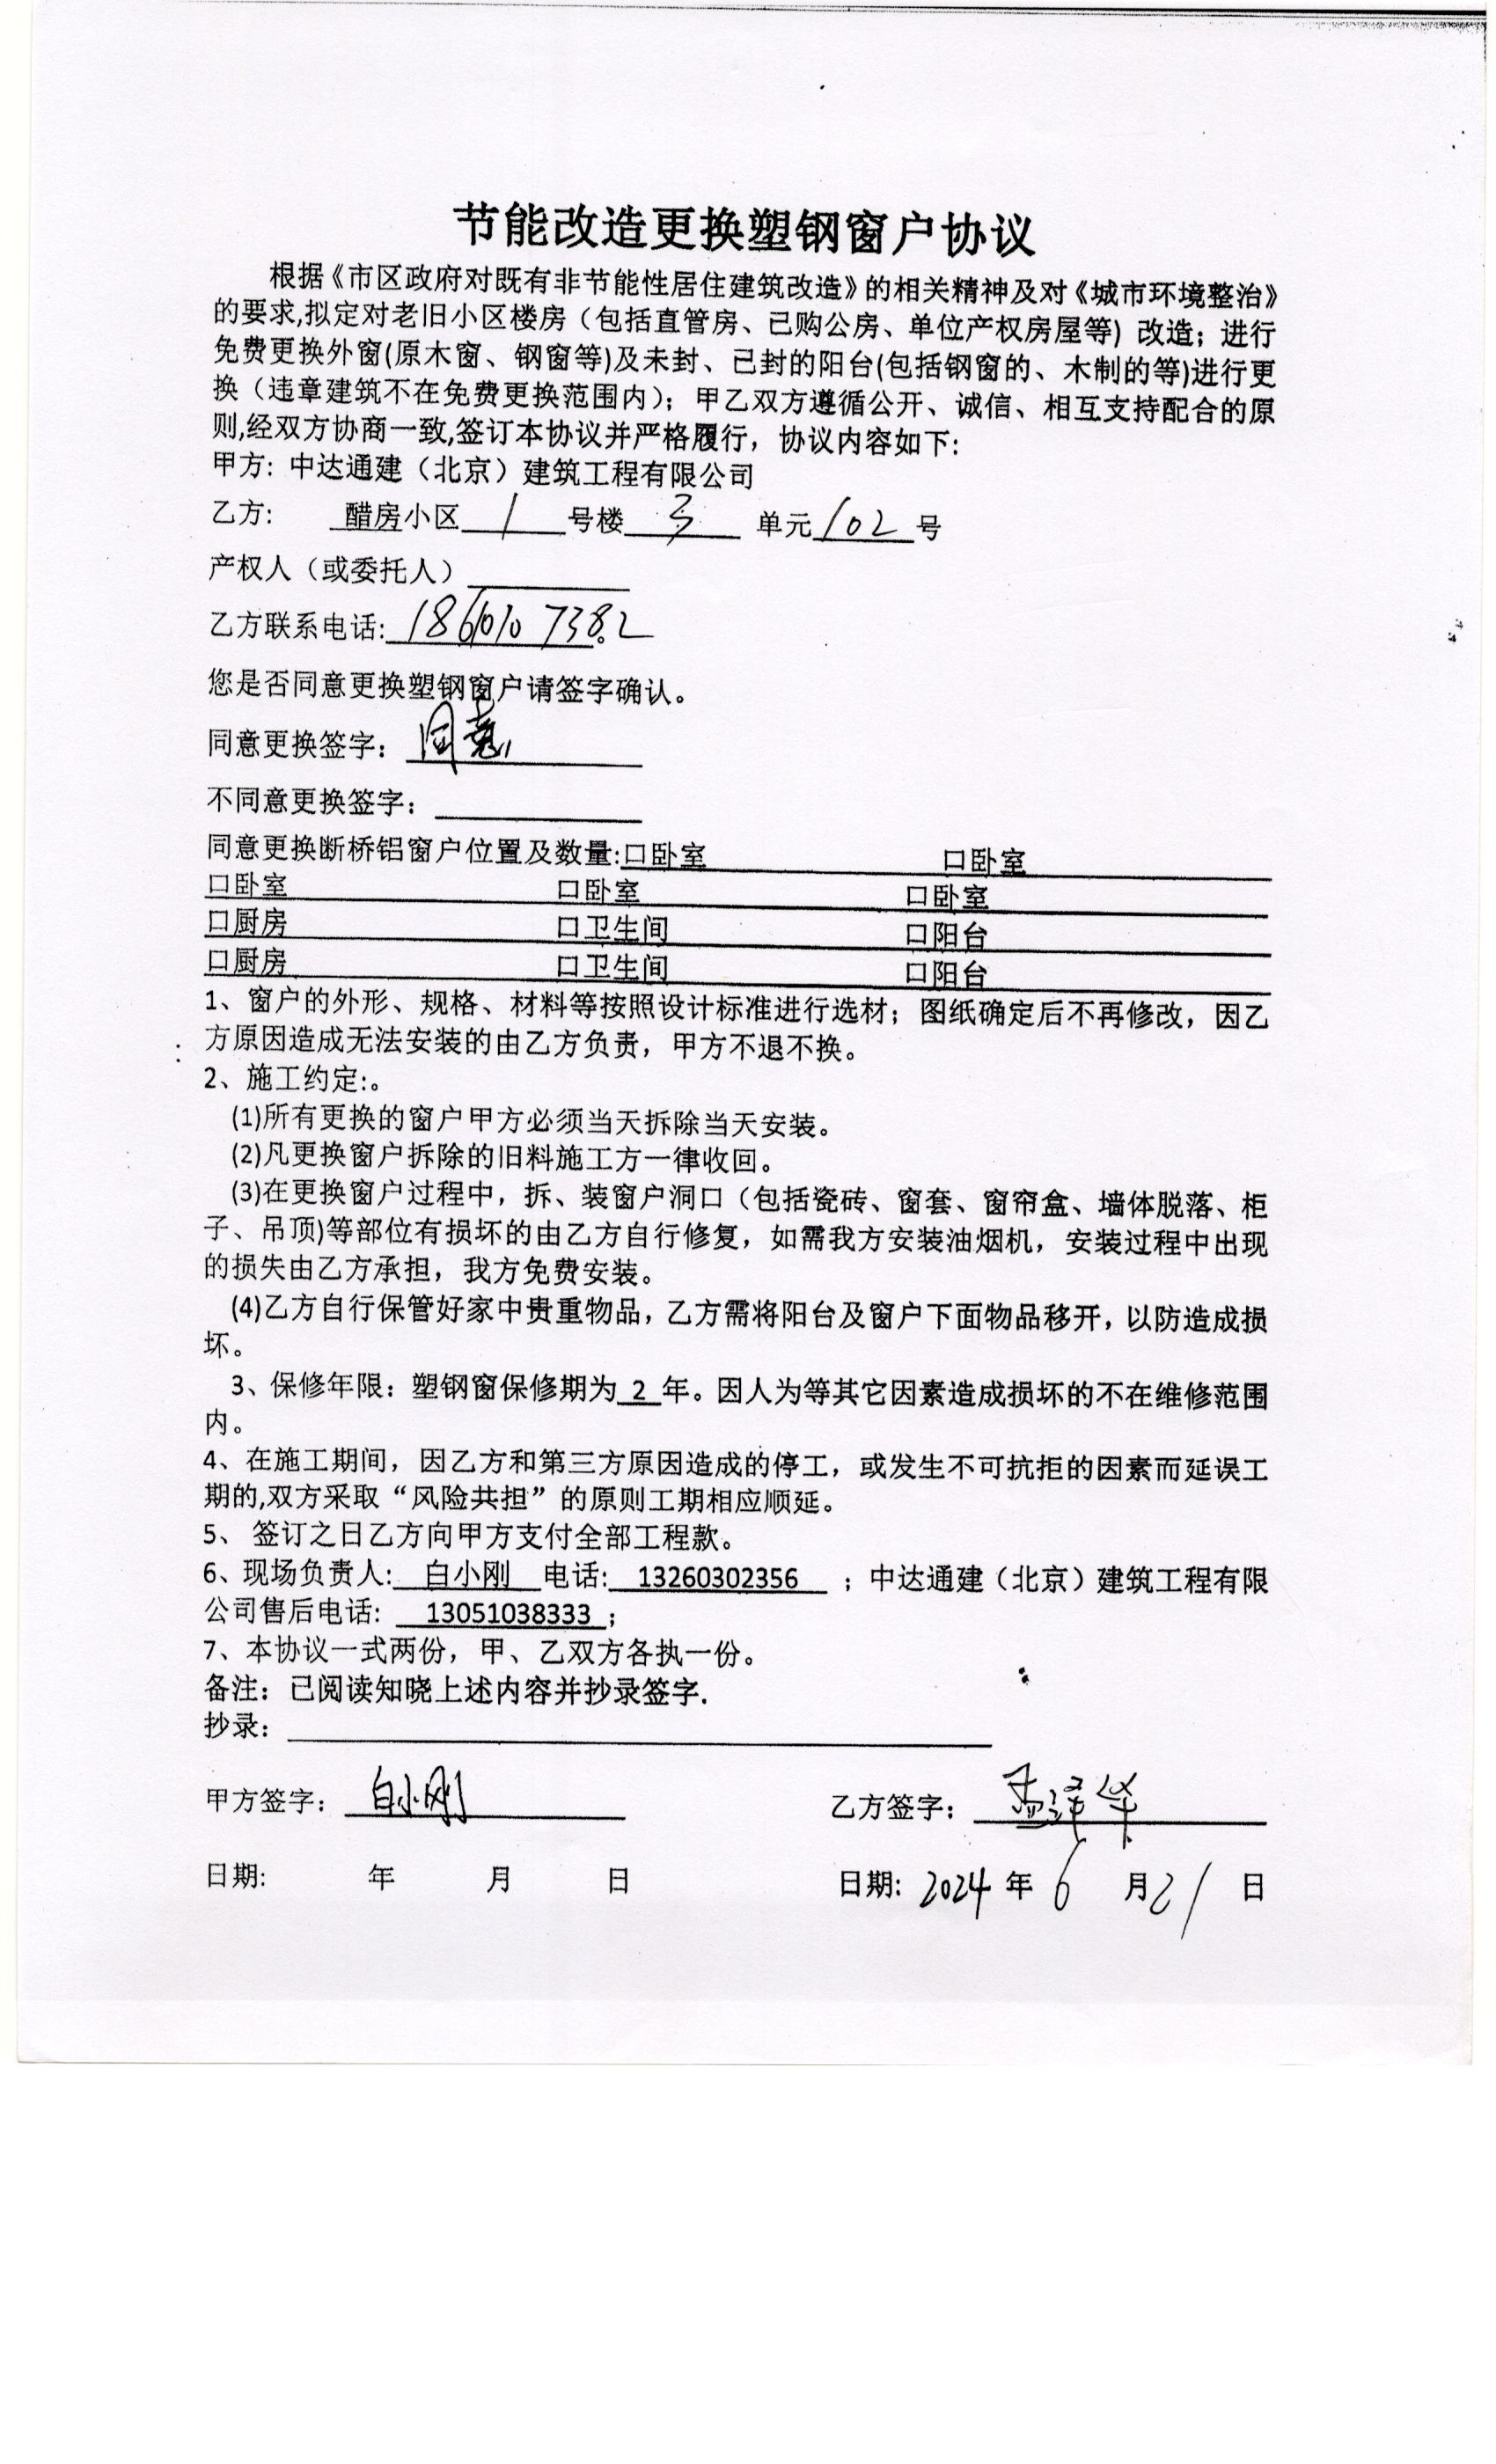 节能改造更换塑钢窗户协议
根据《市区政府对既有非节能性居住建筑改造》的相关精神及对《城市环境整治》
的要求,拟定对老旧小区楼房（包括直管房、已购公房、单位产权房屋等）改造；进行
免费更换外窗(原木窗、钢窗等)及未封、已封的阳台(包括钢窗的、木制的等)进行更
换（违章建筑不在免费更换范围内）；甲乙双方遵循公开、诚信、相互支持配合的原
则,经双方协商一致,签订本协议并严格履行，协议内容如下:
甲方: 中达通建（北京）建筑工程有限公司
乙方: 醋房小区 1 号楼 3 单元 102 号
产权人（或委托人）
乙方联系电话: 1860107382
您是否同意更换塑钢窗户请签字确认。
同意更换签字： 同意
不同意更换签字：
同意更换断桥铝窗户位置及数量:口卧室 口卧室
口卧室 口卧室 口卧室
口厨房 口卫生间 口阳台
口厨房 口卫生间 口阳台
1、窗户的外形、规格、材料等按照设计标准进行选材；图纸确定后不再修改，因乙
方原因造成无法安装的由乙方负责，甲方不退不换。
2、施工约定:。
(1)所有更换的窗户甲方必须当天拆除当天安装。
(2)凡更换窗户拆除的旧料施工方一律收回。
(3)在更换窗户过程中，拆、装窗户洞口（包括瓷砖、窗套、窗帘盒、墙体脱落、柜
子、吊顶)等部位有损坏的由乙方自行修复，如需我方安装油烟机，安装过程中出现
的损失由乙方承担，我方免费安装。
(4)乙方自行保管好家中贵重物品，乙方需将阳台及窗户下面物品移开，以防造成损
坏。
3、保修年限：塑钢窗保修期为 2 年。因人为等其它因素造成损坏的不在维修范围
内。
4、在施工期间，因乙方和第三方原因造成的停工，或发生不可抗拒的因素而延误工
期的,双方采取“风险共担”的原则工期相应顺延。
5、 签订之日乙方向甲方支付全部工程款。
6、现场负责人: 白小刚 电话: 13260302356 ；中达通建（北京）建筑工程有限
公司售后电话: 13051038333 ；
7、本协议一式两份，甲、乙双方各执一份。
备注：已阅读知晓上述内容并抄录签字.
抄录：
甲方签字： 白小刚 乙方签字： 孟泽华
日期: 年 月 日 日期: 2024 年 6 月 21 日